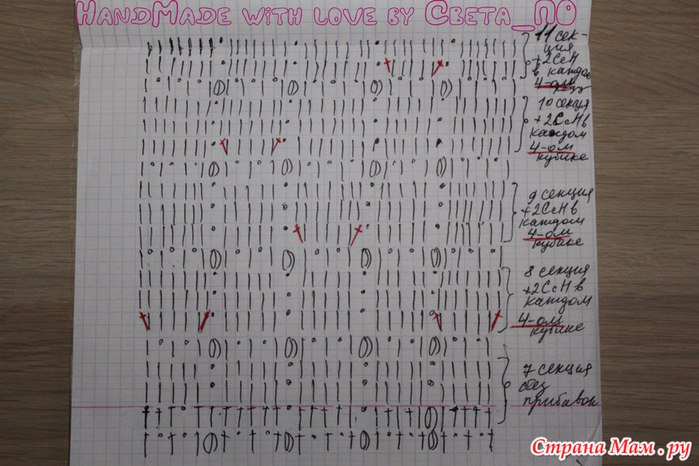 HandMade with love by Света_ПО
11 сек-
ция
+2СсН
в каждом
4-ом
10 секция
+2СсН в
каждом
4-ом
кубике
9 секция
+2ССН в
каждом
4-ом
кубике
8 секция
+2СсН в
каждом
4-ом
кубике
7 секция
без
прибавок
Страна Мам.ру